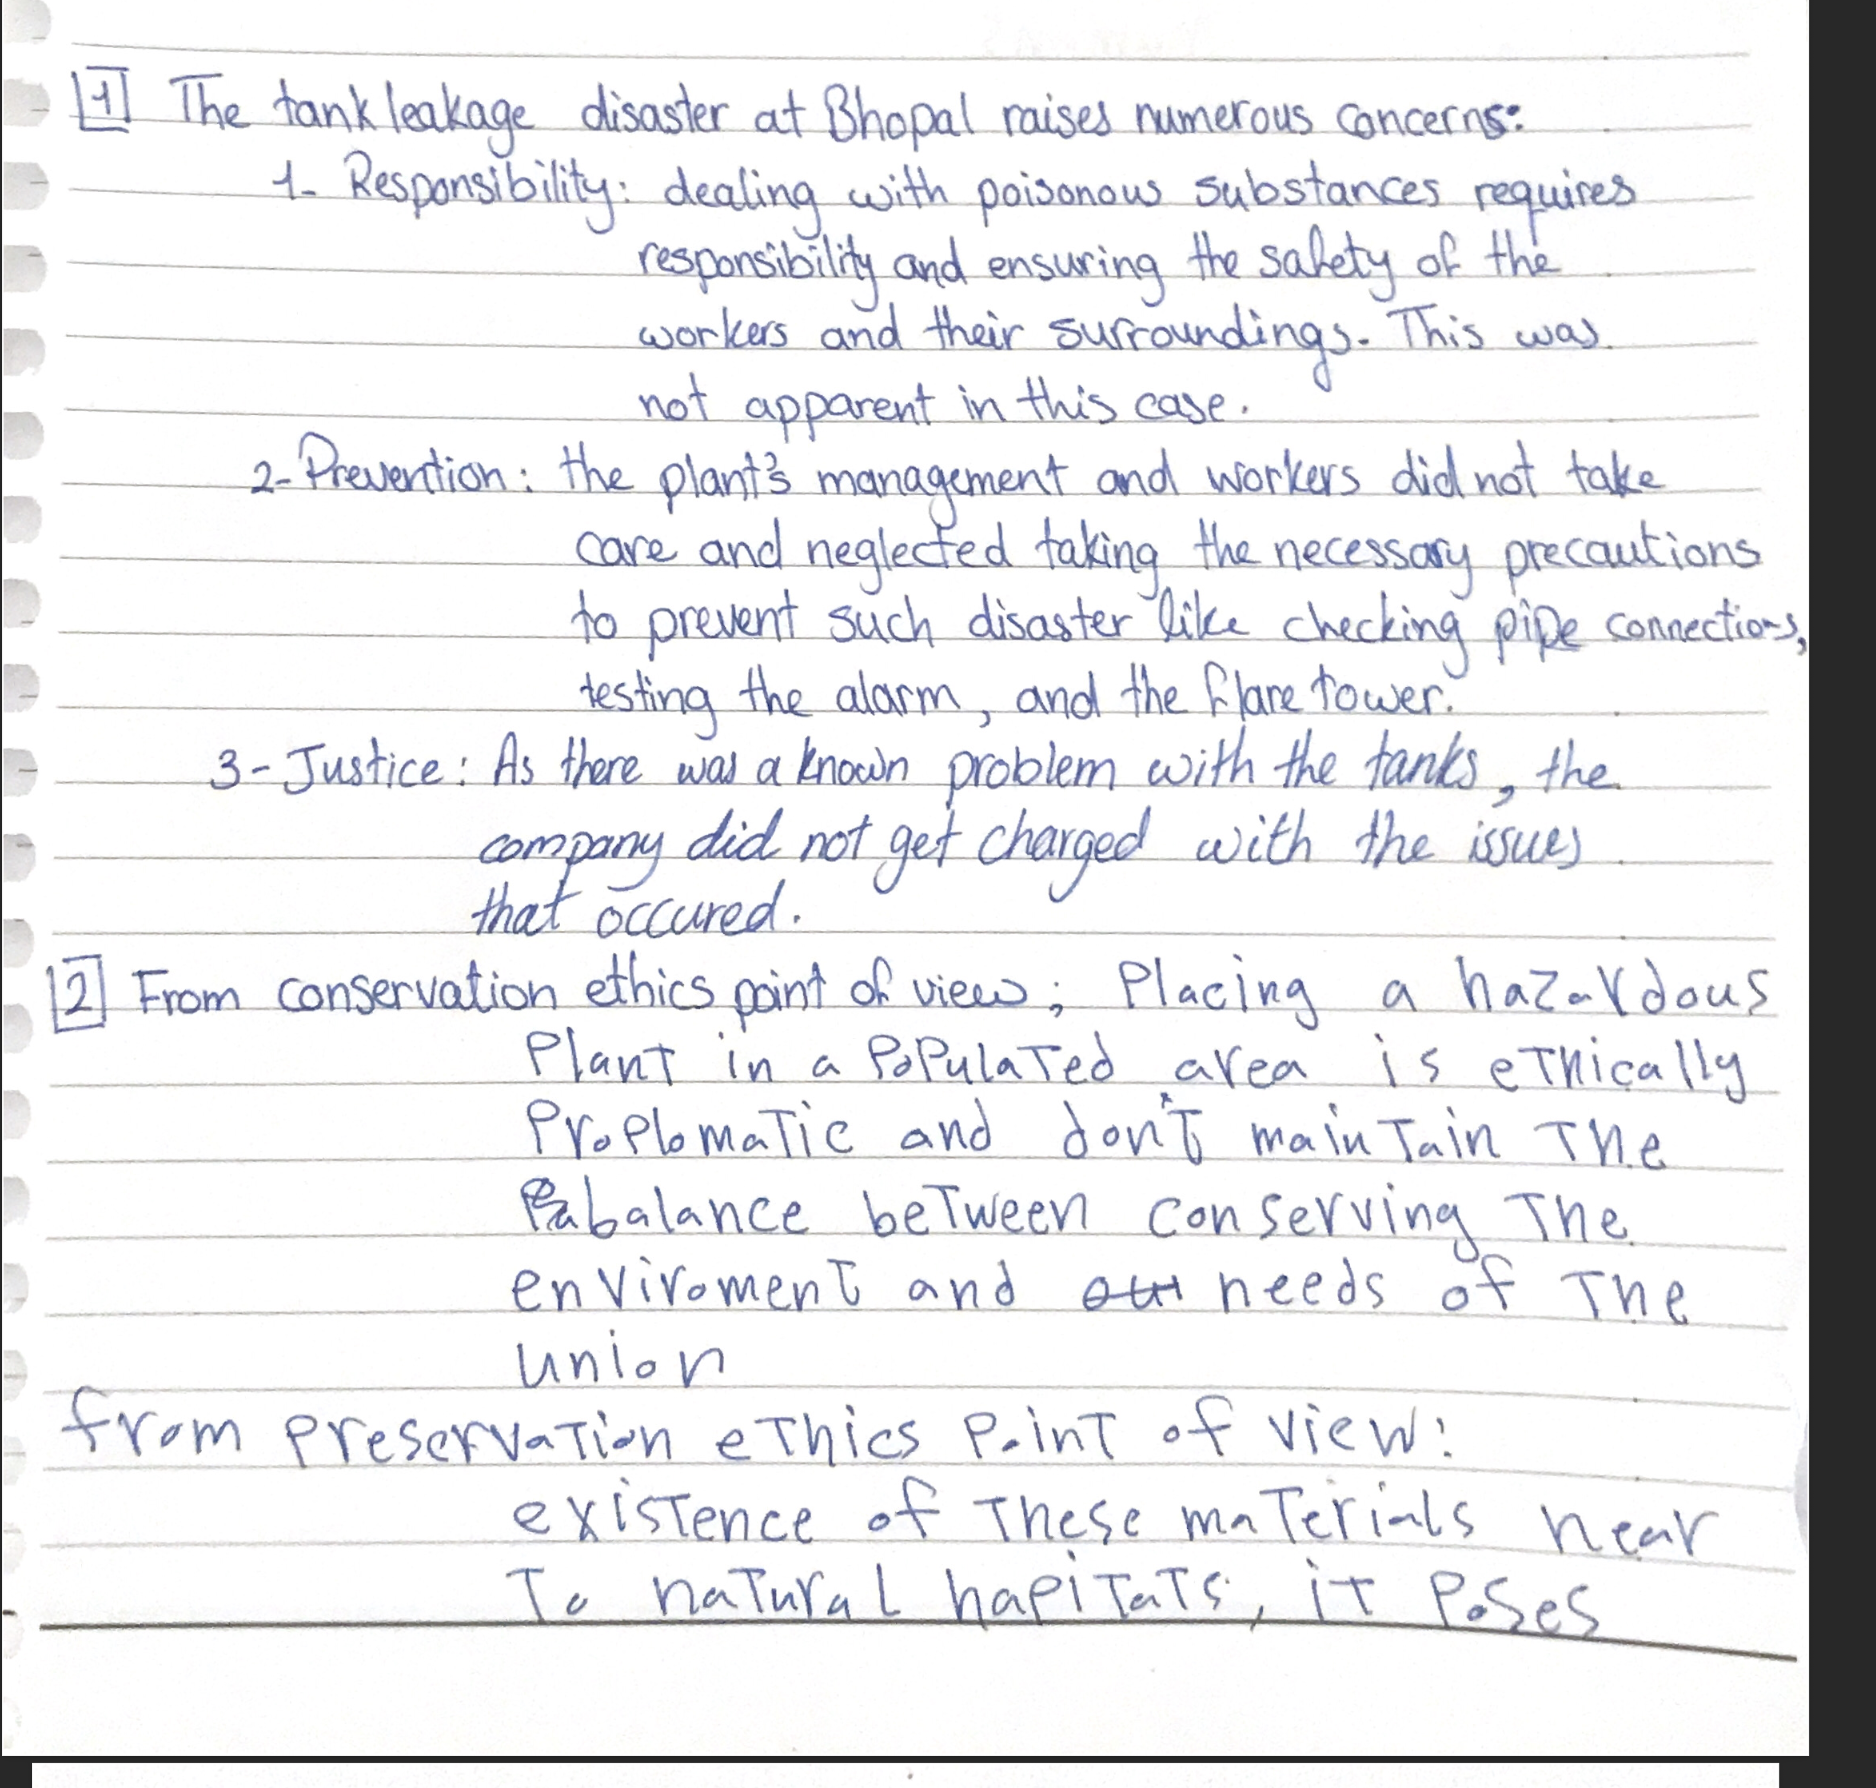 1 The tank leakage disaster at Bhopal raises numerous concerns:
1- Responsibility: dealing with poisonous substances requires
responsibility and ensuring the safety of the
workers and their surroundings. This was
not apparent in this case.
2- Prevention: the plant's management and workers did not take
care and neglected taking the necessary precautions
to prevent such disaster like checking pipe connections,
testing the alarm, and the flare tower.
3- Justice: As there was a known problem with the tanks, the
company did not get charged with the issues
that occured.
2 From conservation ethics point of view; Placing a hazardous
Plant in a Populated area is ethically
Proplomatic and don't maintain The
balance between conserving The
enviroment and needs of The
union
from preservation ethics Point of view:
existence of These materials near
To natural hapitats, it Poses